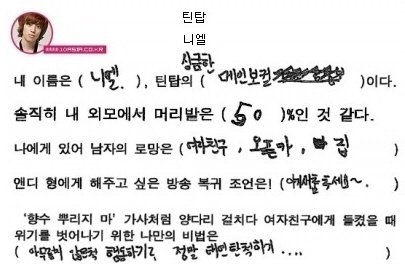 틴탑
니엘
WWW.10ASIA.CO.KR
상큼한
내 이름은 ( 니엘. ), 틴탑의 ( 메인보컬 )이다.
솔직히 내 외모에서 머리발은 ( 50 )%인 것 같다.
나에게 있어 남자의 로망은 ( 여자친구, 오픈카, 집 )
앤디 형에게 해주고 싶은 방송 복귀 조언은! ( )
'향수 뿌리지 마' 가사처럼 양다리 걸치다 여자친구에게 들켰을 때
위기를 벗어나기 위한 나만의 비법은
( 아무렇지 않은척 행동하기! 정말 태연한척하기 .... )